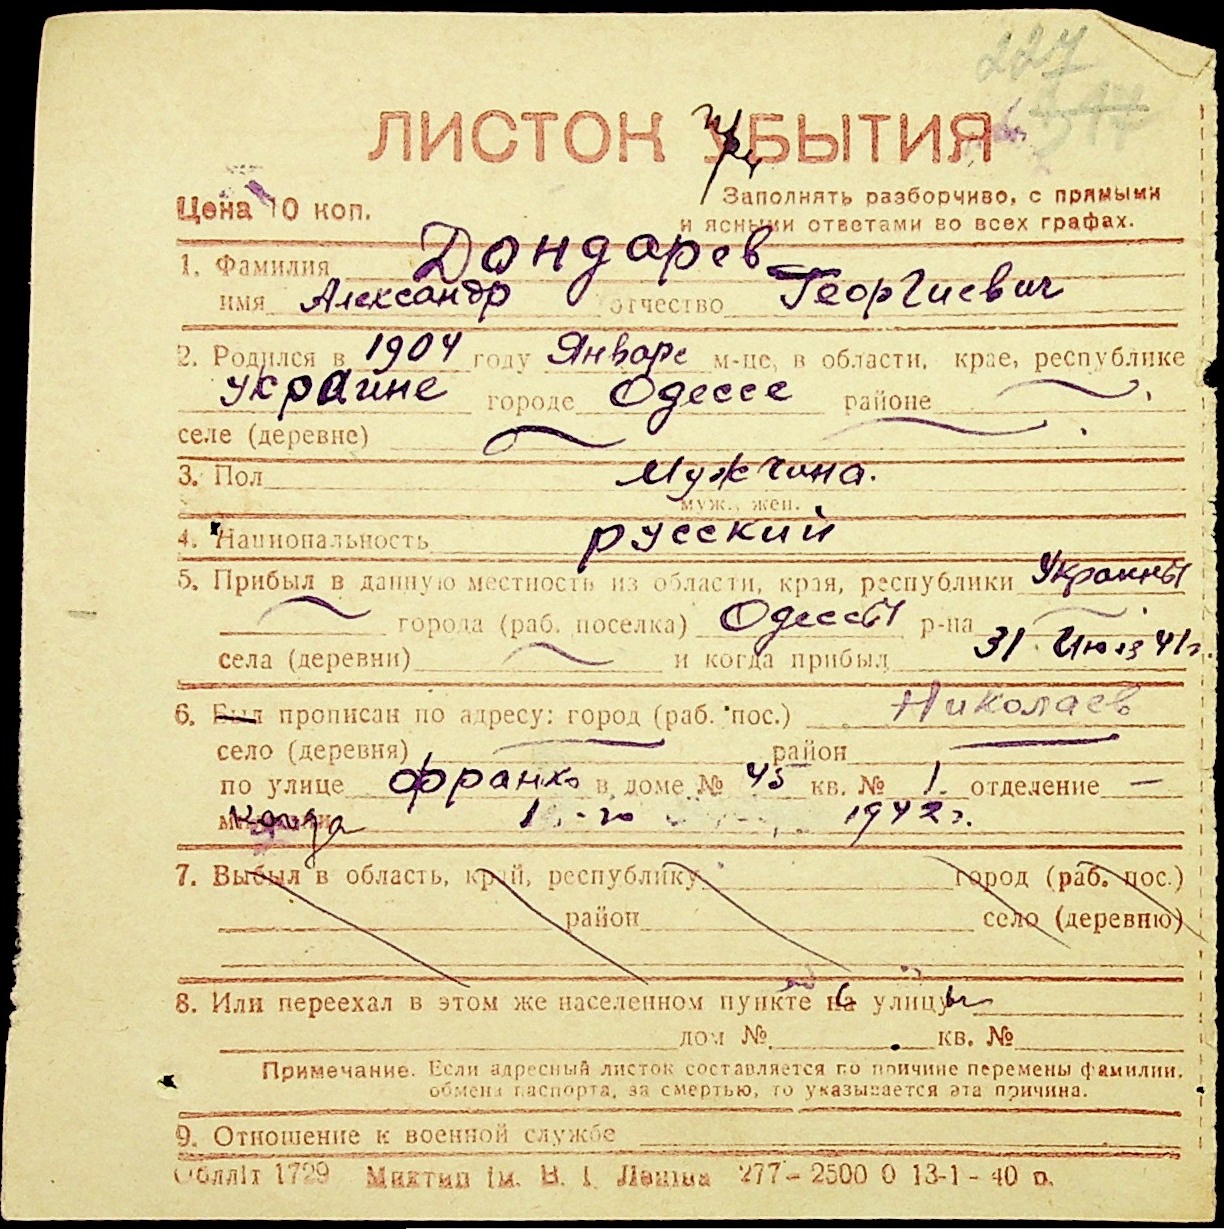 227
517
ЛИСТОК УБЫТИЯ
При
Цена 10 коп.
Заполнять разборчиво, с прямыми
и ясными ответами во всех графах.
1. Фамилия Дондарев
имя Александр отчество Георгиевич
2. Родился в 1904 году Январе м-це, в области, крае, республике
Украине городе Одессе районе
селе (деревне)
3. Пол Мужчина.
муж., жен.
4. Национальность русский
5. Прибыл в данную местность из области, края, республики Украины
города (раб. поселка) Одессы р-на
села (деревни) и когда прибыл 31 Июля 41г.
6. Был прописан по адресу: город (раб. пос.) Николаев
село (деревня) район
по улице Франко в доме № 45 кв. № 1. отделение —
Когда 1942г.
7. Выбыл в область, край, республику город (раб. пос.)
район село (деревню)
8. Или переехал в этом же населенном пункте на улицу
дом № кв. №
Примечание. Если адресный листок составляется по причине перемены фамилии,
обмена паспорта, за смертью, то указывается эта причина.
9. Отношение к военной службе
Облліт 1729 Миктип ім. В. І. Леніна 277 - 2500 0 13-1 - 40 р.